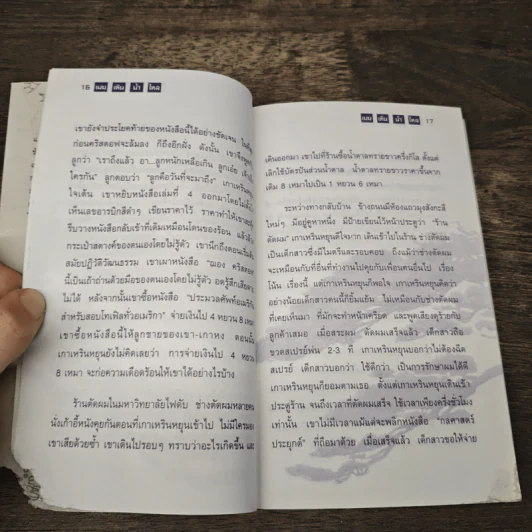 16 เนม เดิม น้ำ ไหล
เขายังจำประโยคท้ายของหนังสือนี้ได้อย่างชัดเจน
ก่อนคริสตอฟจะล้มลง ก็ถึงอีกฝั่ง ดังนั้น
ลูกว่า "เราถึงแล้ว อา...ลูกหนักเหลือเกิน ลูกเอ๋ย
ใครกัน" ลูกตอบว่า "ลูกคือวันที่จะมาถึง" เกาเหรินหยุน
ใจเต้น เขาหยิบหนังสือเล่มที่ 4 ออกมาโดยไม่
เห็นเลขอารบิกสีดำๆ เขียนราคาไว้ ราคาทำให้เขา
รีบวางหนังสือกลับเข้าที่เดิมเหมือนโดนของร้อน แล้ว
กระเป๋าสตางค์ของตนเองโดยไม่รู้ตัว เขานึกถึงตอนเริ่ม
สมัยปฏิวัติวัฒนธรรม เขาเผาหนังสือ "ฌอง คริสตอฟ
นี้เป็นเถ้าถ่านด้วยมือของตนเองโดยไม่รู้ตัว อดรู้สึกเสีย
ไม่ได้ หลังจากนั้นเขาซื้อหนังสือ "ประมวลศัพท์อเมริกั
สำหรับสอบโทเฟิลทั่วอเมริกา" จ่ายเงินไป 4 หยวน 8 เหมา
เขาซื้อหนังสือนี้ให้ลูกชายของเขา-เกาหง ตอนนั้น
เกาเหรินหยุนยังไม่คิดเลยว่า การจ่ายเงินไป 4 หยวน
8 เหมา จะก่อความเดือดร้อนให้เขาได้อย่างไรบ้าง
ร้านตัดผมในมหาวิทยาลัยไฟดับ ช่างตัดผมหลายคน
นั่งเก้าอี้หนังคุยกันตอนที่เกาเหรินหยุนเข้าไป ไม่มีใคร
เขาเสียด้วยซ้ำ เขาเดินไปรอบๆ ทราบว่าอะไรเกิดขึ้น และ
เนม เดิม น้ำ ไหล 17
เดินออกมา เขาไปที่ร้านซื้อน้ำตาลทรายขาวครึ่งกิโล ตั้งแต่
เลิกใช้บัตรปันส่วนน้ำตาล น้ำตาลทรายขาวราคาขึ้นจาก
เดิม 8 เหมาไปเป็น 1 หยวน 6 เหมา
ระหว่างทางกลับบ้าน ข้างถนนมีห้องแถวมุงสังกะสี
ใหม่ๆ มีอยู่คูหาหนึ่ง มีป้ายเขียนไว้หน้าประตูว่า "ร้าน
ตัดผม" เกาเหรินหยุนดีใจมาก เดินเข้าไปในร้าน ช่างตัดผม
เป็นเด็กสาวซึ่งมีไมตรีและรอบคอบ ถึงแม้ว่าช่างตัดผม
จะเหมือนกับที่อื่นที่ทำงานไปคุยกับเพื่อนคนอื่นไป เรื่อง
โน้น เรื่องนี้ แต่เกาเหรินหยุนก็พอใจ เกาเหรินหยุนคิดว่า
อย่างน้อยเด็กสาวคนนี้ก็ยิ้มแย้ม ไม่เหมือนกับช่างตัดผม
ที่เคยเห็นมา ที่มักจะทำหน้าเครียด และพูดเสียงดุร้ายกับ
ลูกค้าเสมอ เมื่อสระผม ตัดผมเสร็จแล้ว เด็กสาวถือ
ขวดสเปรย์พ่น 2-3 ที่ เกาเหรินหยุนบอกว่าไม่ต้องฉีด
สเปรย์ เด็กสาวบอกว่า ใช้ดีกว่า เป็นการรักษาผมได้ดี
เกาเหรินหยุนก็ยอมตามเธอ ตั้งแต่เกาเหรินหยุนเดินเข้า
ประตูร้าน จนถึงเวลาที่ตัดผมเสร็จ ใช้เวลาเพียงครึ่งชั่วโมง
เท่านั้น เขาไม่มีเวลาแม้แต่จะพลิกหนังสือ "กลศาสตร์
ประยุกต์" ที่ถือมาด้วย เมื่อเสร็จแล้ว เด็กสาวขอให้จ่าย